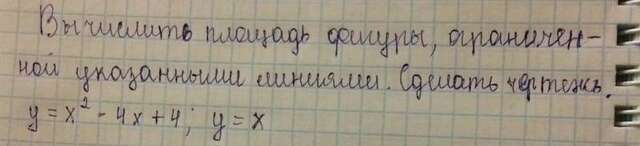 Вычислить площадь фигуры, ограничен-
ной указанными линиями. Сделать чертежь.
y = x² - 4x + 4; y = x